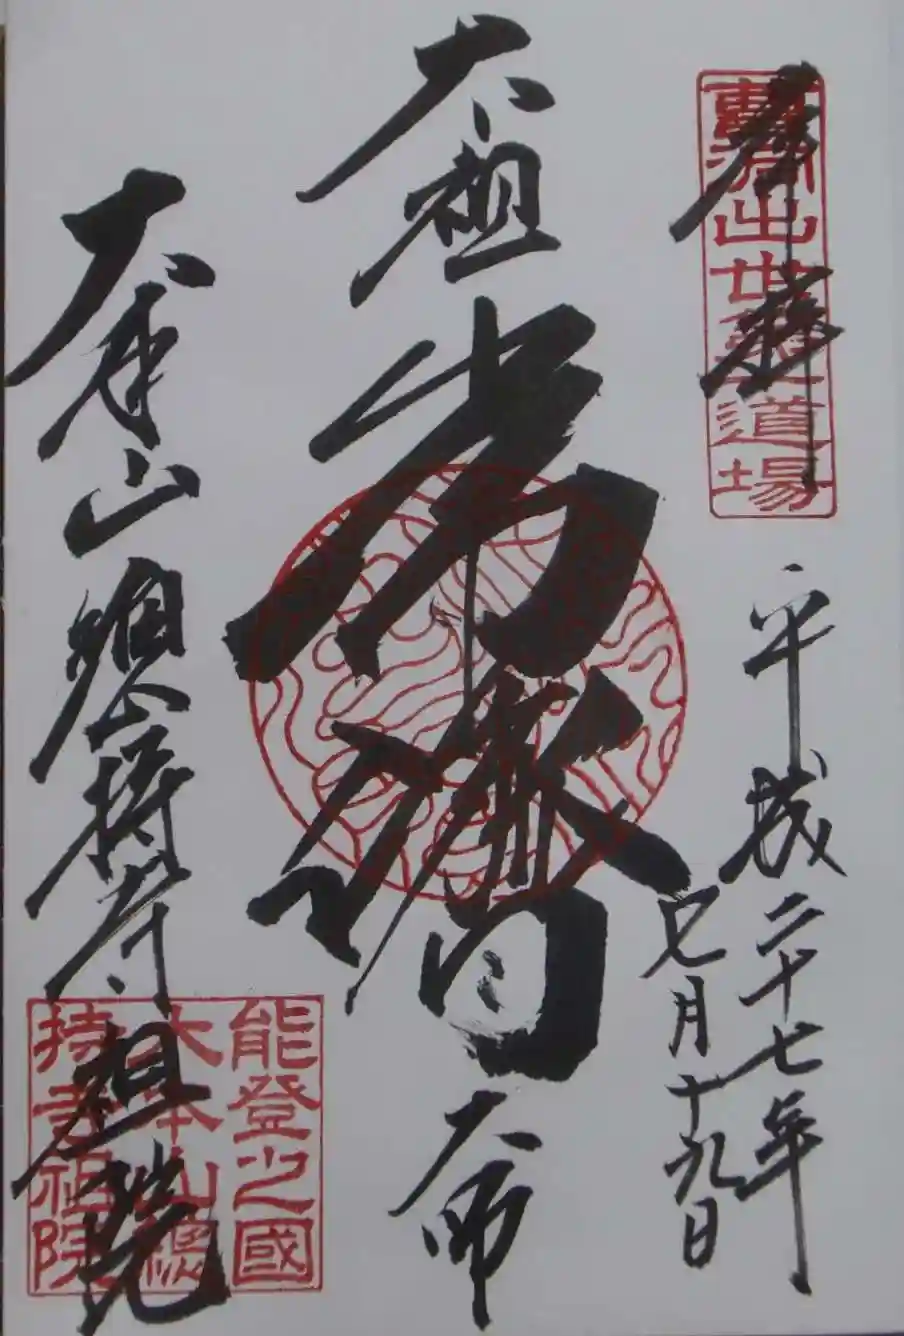 奉拝
曹洞出世第一道場
平成二十七年
七月十九日
太祖
常濟大師
大本山總持寺祖院
能登之國
大本山總
持寺祖院